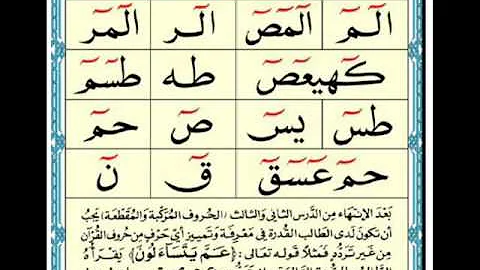 الٓمٓ الٓمٓصٓ الٓر الٓمٓر
كٓهيعٓصٓ طه طسٓمٓ
طسٓ يسٓ صٓ حمٓ
حمٓ عٓسٓقٓ قٓ نٓ
بَعْدَ الإِنْتِهَاءِ مِنَ الدَّرْسِ الثَّانِي وَالثَّالِثِ (الْحُرُوفِ الْمُرَكَّبَةِ وَالْمُقَطَّعَةِ) يَجِبُ
أَنْ تَكُونَ لَدَى الطَّالِبِ الْقُدْرَةُ فِي مَعْرِفَةِ وَتَمْيِيزِ أَيِّ حَرْفٍ مِنْ حُرُوفِ الْقُرْآنِ
مِنْ غَيْرِ تَرَدُّدٍ فَمَثَلًا قَوْلُهُ تَعَالَى: ﴿عَمَّ يَتَسَآءَلُونَ﴾ يَقْرَأُهُ